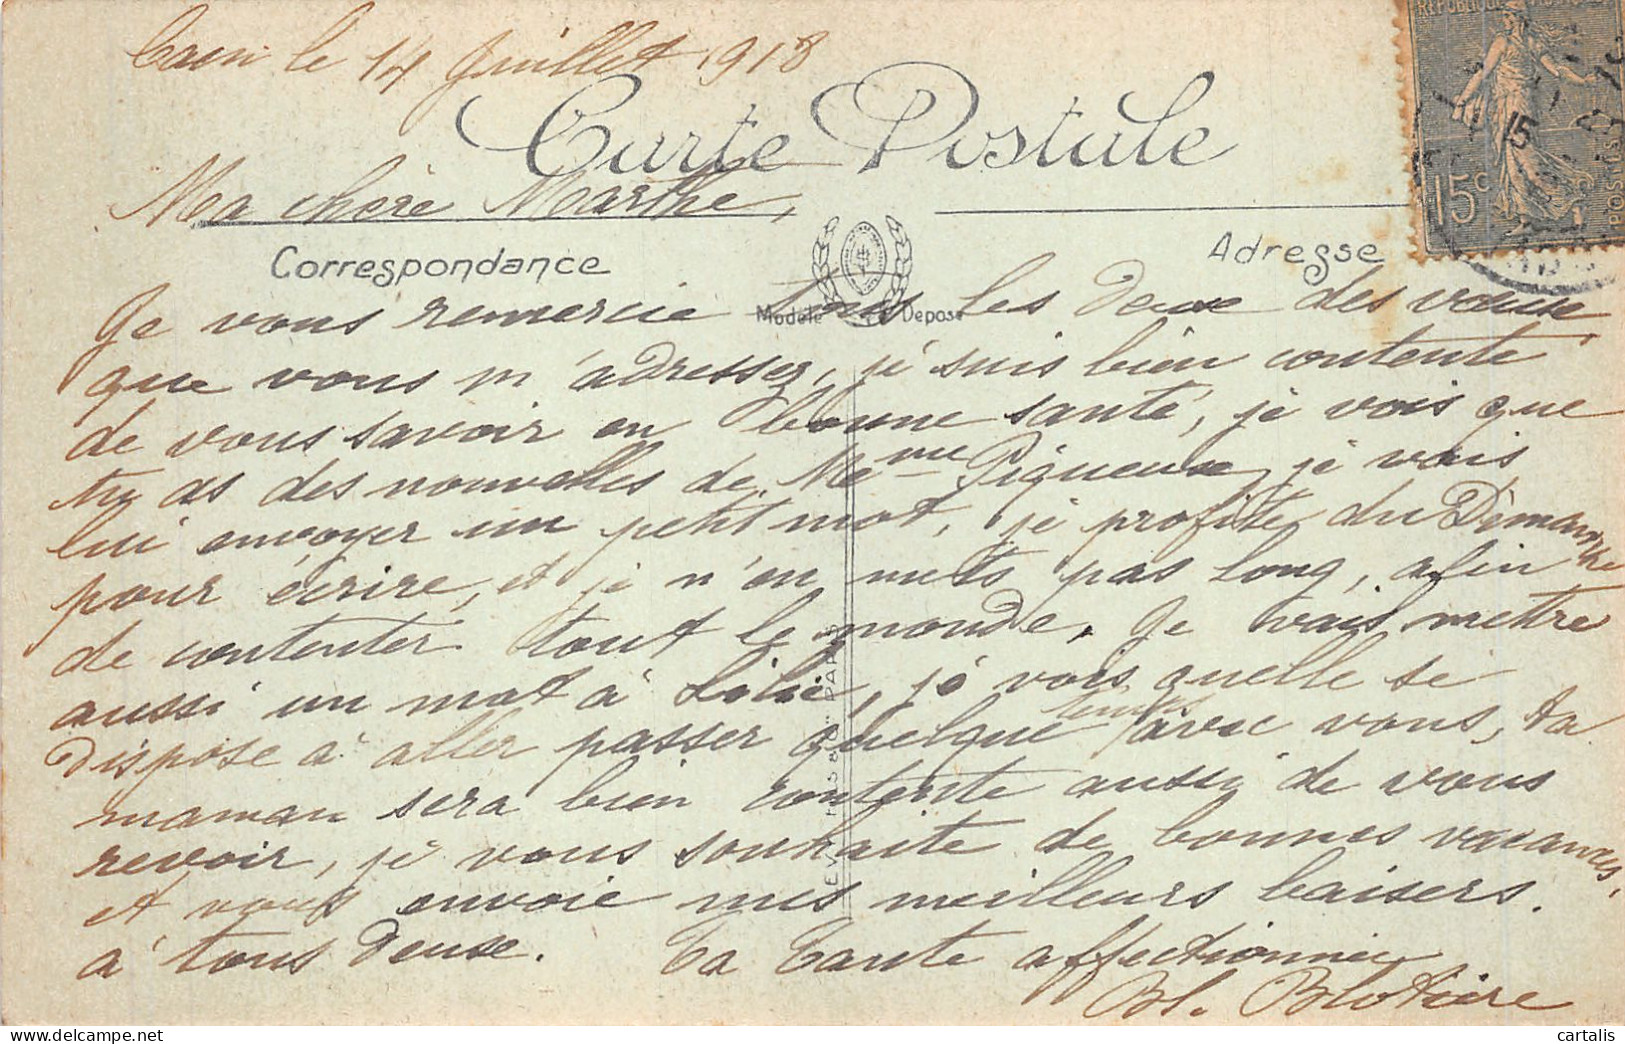 Caen le 14 Juillet 1918
Carte Postale
REPUBLIQUE
15c
POSTES
15
Ma chère Marthe,
Correspondance
Adresse
Modèle Déposé
Je vous remercie tous les deux des vœux
que vous m'adressez, je suis bien contente
de vous savoir en bonne santé, je vois que
tu as des nouvelles de Mme Piqueux, je vais
lui envoyer un petit mot, je profite du Dimanche
pour écrire, et je n'en mets pas long, afin
de contenter tout le monde. Je vais mettre
aussi un mot à Lili, je vois quelle se
dispose à aller passer quelque temps avec vous, ta
maman sera bien contente aussi de vous
revoir, je vous souhaite de bonnes vacances,
et vous envoie mes meilleurs baisers.
à tous deux. Ta Tante affectionnée
Bl. Blotière
PARIS
cartalis